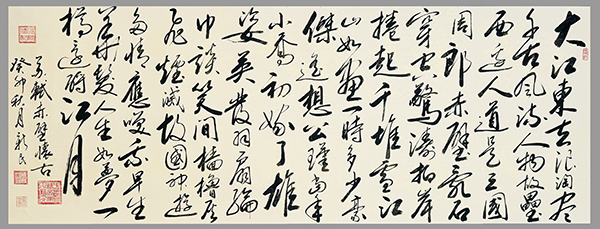 大江東去浪淘盡
千古風流人物故壘
西邊人道是三國
周郎赤壁亂石
穿空驚濤拍岸
捲起千堆雪江
山如畫一時多少豪
傑遙想公瑾當年
小喬初嫁了雄
姿英發羽扇綸
巾談笑間檣櫓灰
飛煙滅故國神遊
多情應笑我早生
華髮人生如夢一
樽還酹江月
蘇軾赤壁懷古
癸卯秋月新民